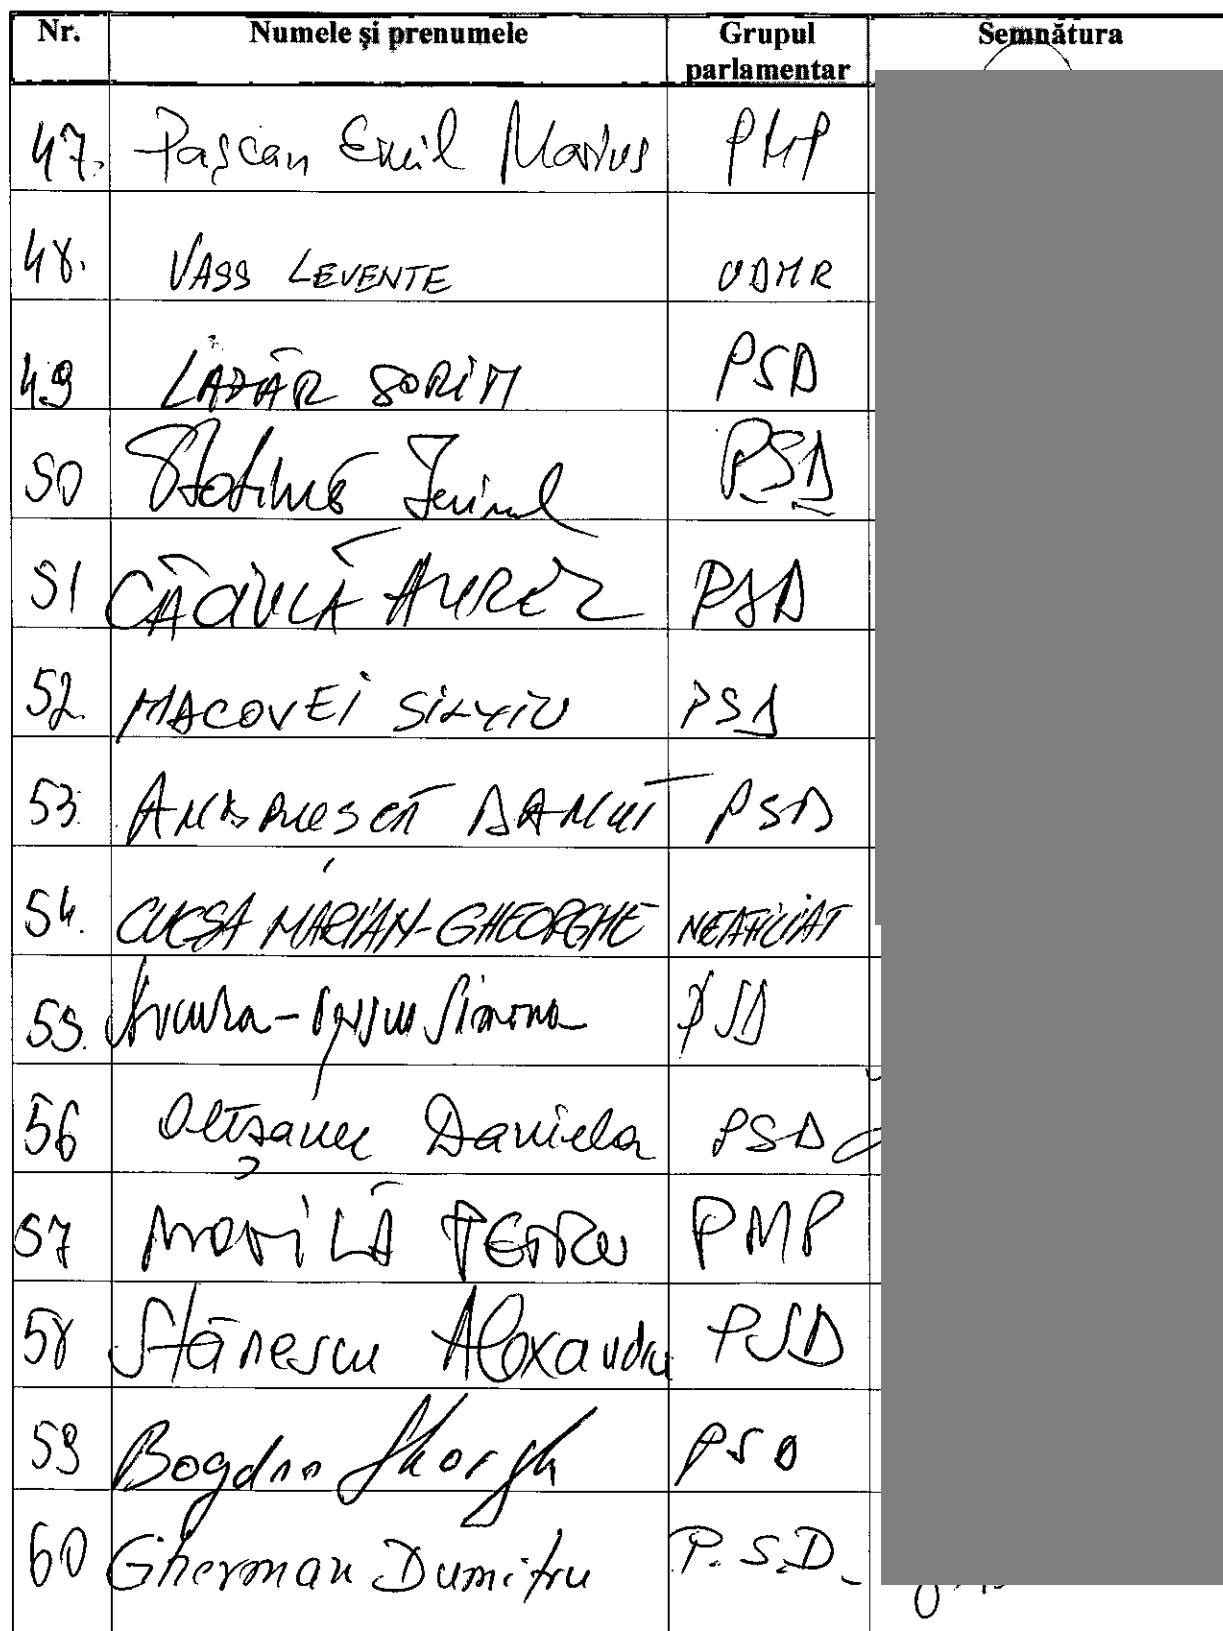 Nr. Numele și prenumele Grupul parlamentar Semnătura
47. Pașcan Emil Marius PMP
48. VASS LEVENTE UDMR
49 LAZĂR SORIN PSD
50 PSD
51 CĂCIULĂ AUREL PSD
52. MACOVEI SILVIU PSD
53. DANUT PSD
54. CUCSA MARIAN-GHEORGHE NEAFILIAT
55. Simona PSD
56 Olțeanu Daniela PSD
57 MOVILĂ PETRU PMP
58 Stănescu Alexandru PSD
59 Bogdan PSD
60 Gherman Dumitru P.S.D.